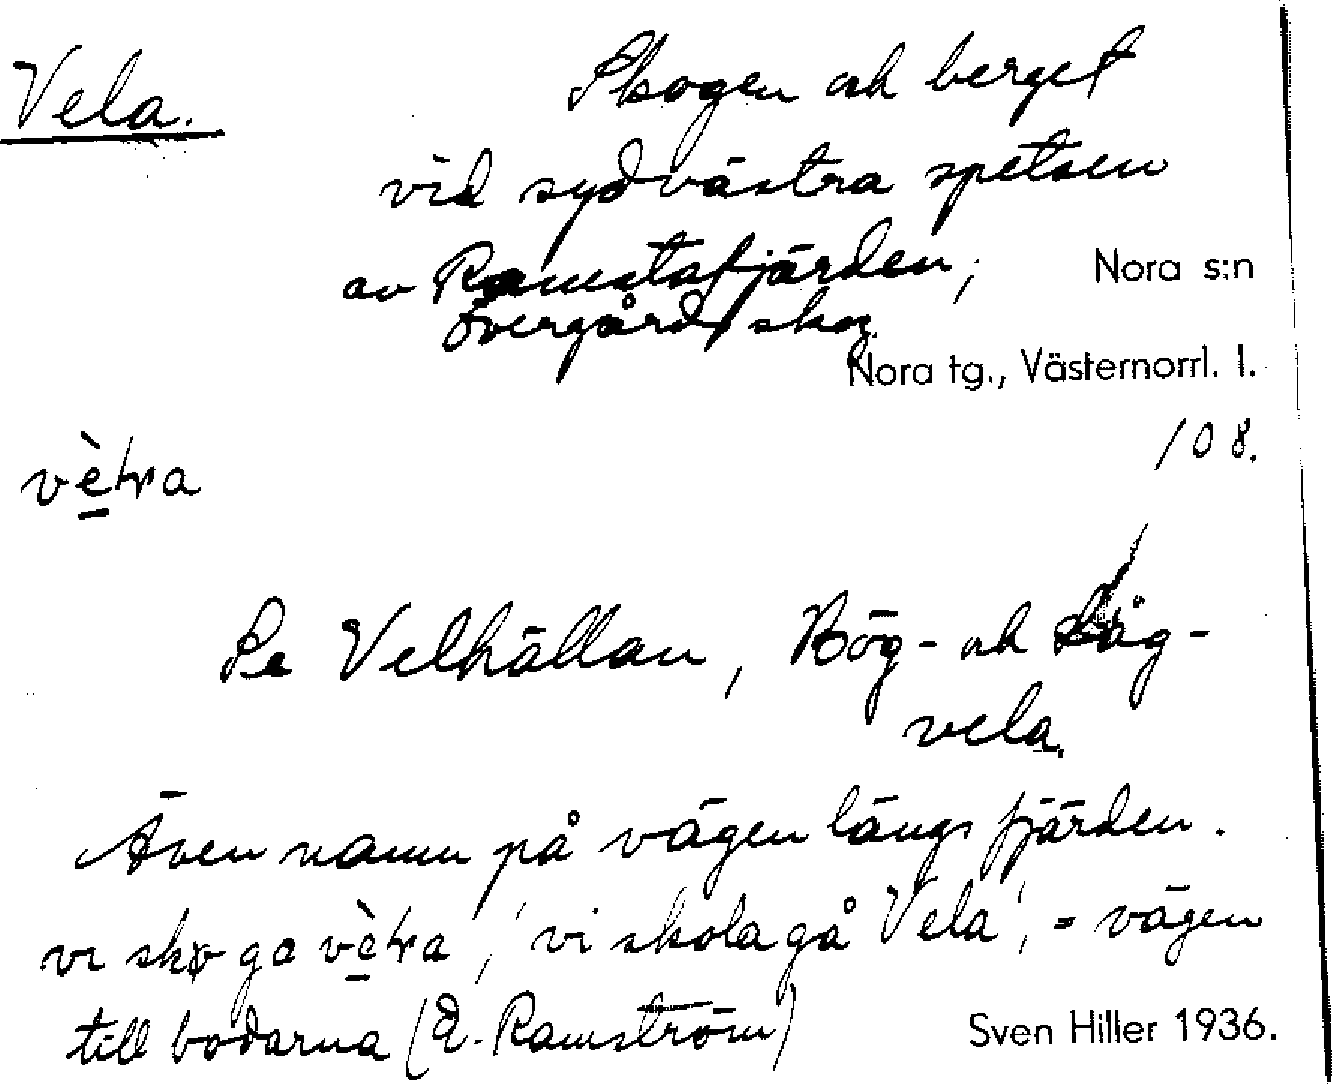 Vela. Skogen och berget
vid sydvästra spetsen
av Ramstafjärden; Nora s:n
Övergårds skog.
Nora tg., Västernorrl. l.
108.
Se Velhällan, Hög- och Låg-
vela.
Även namn på vägen längs fjärden.
'vi skola gå Vela', = vägen
till bodarna (E. Ramström)
Sven Hiller 1936.